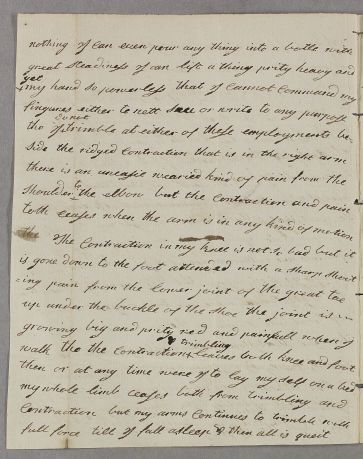 nothing I can even pour any thing into a botle with
great steadiness I can lift a thing prity heavy and
yet
my hand so powerless that I cannot command my
fingures either to nett sew or write to any purpose
tho I trimble at either of these employments be-
side the ridged contraction that is in the right arm
there is an uneasie wearied kind of pain from the
shoulder to the elbow but the contraction and pain
both ceases when the arm is in any kind of motion
The Contraction in my knee is not so bad but it
is gone down to the foot attended with a sharp shoot
ing pain from the lower joint of the great toe
up under the buckle of the shoe the joint is
growing big and prity red and painfull when I
trimbling
walk tho the contraction leaves both knee and foot
then or at any time were I to lay my self on a bed
my whole limb ceases both from trimbling and
Contraction but my arms Continues to trimble with
full force till I fall asleep & then all is queit